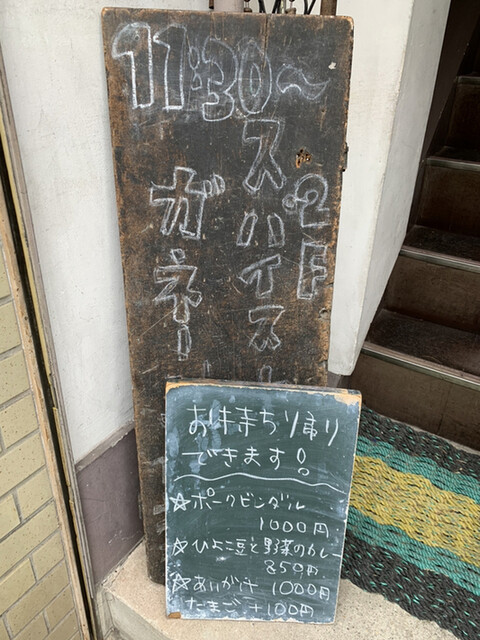 11:30～
2F
スパイス
ガネー
お持ち帰り
できます!
☆ポークビンダル
1000円
☆ひよこ豆と野菜のカレー
850円
☆あいがけ 1000円
たまご +100円